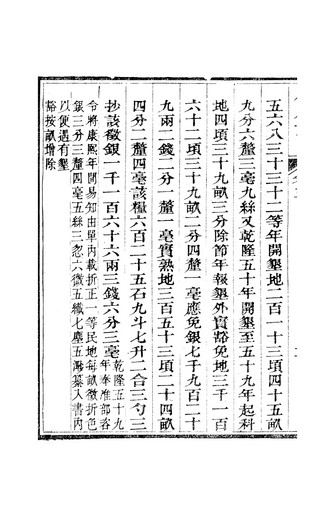 五六八三十三十二等年開墾地二百一十三頃四十五畝
九分六釐三毫九絲又乾隆五十年開墾至五十九年起科
地四頃三十九畝三分除節年報墾外實豁免地三千一百
六十二頃三十九畝二分四釐一毫應免銀七千九百二十
九兩二錢二分一釐一毫實熟地三百五十三頃二十四畝
四分二釐四毫該糧六百二十五石九斗七升二合三勺三
抄該徵銀一千一百六十六兩三錢六分三毫乾隆五十九
年奉准部咨
令將康熙年間易知由單內載折正一等民地每畝徵折色
銀三分三釐四毫五絲三忽六微五纖七塵五渺纂入書內
以便遇有墾
豁按畝增除